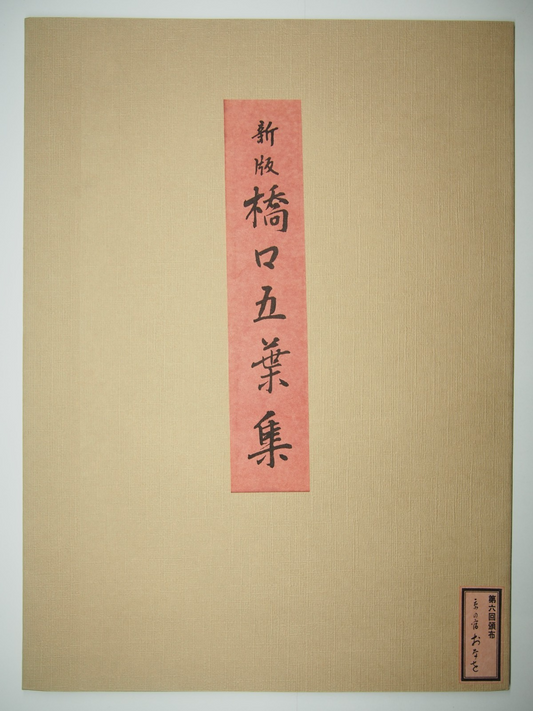 新版 橋口五葉集
第六回頒布
京の宿 おなを